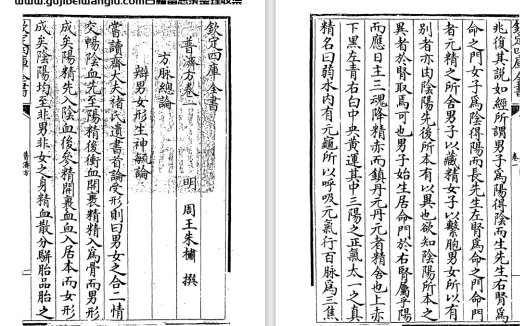 兆復其説如經所謂男子為陽得陰而生先生右腎為
命之門女子為陰得陽而長先生左腎為命之門命門
者元精之所舍男子以藏精女子以繫胞男女所以有
别者亦由陰陽先後所本有以異也欲知陰陽所本之
異者於腎取焉可也男子始生居命門於右腎屬乎陽
而應日主三魂降精赤而鎮丹元丹元者精舍也上赤
下黑左青右白中央黄運其中三陽之正氣太一之真
精名曰弱水内有元龜所以呼吸元氣行百脈為三焦
欽定四庫全書
普濟方卷一
明 周王朱橚 撰
方脉總論
辯男女形生神毓論
嘗讀齊大夫褚氏遺書首論受形則曰男女之合二情
交暢陰血先至陽精後衝血開裹精精入為骨而男形
成矣陽精先入陰血後參精開裹血血入居本而女形
成矣陰陽均至非男非女之身精血散分駢胎品胎之
普濟方